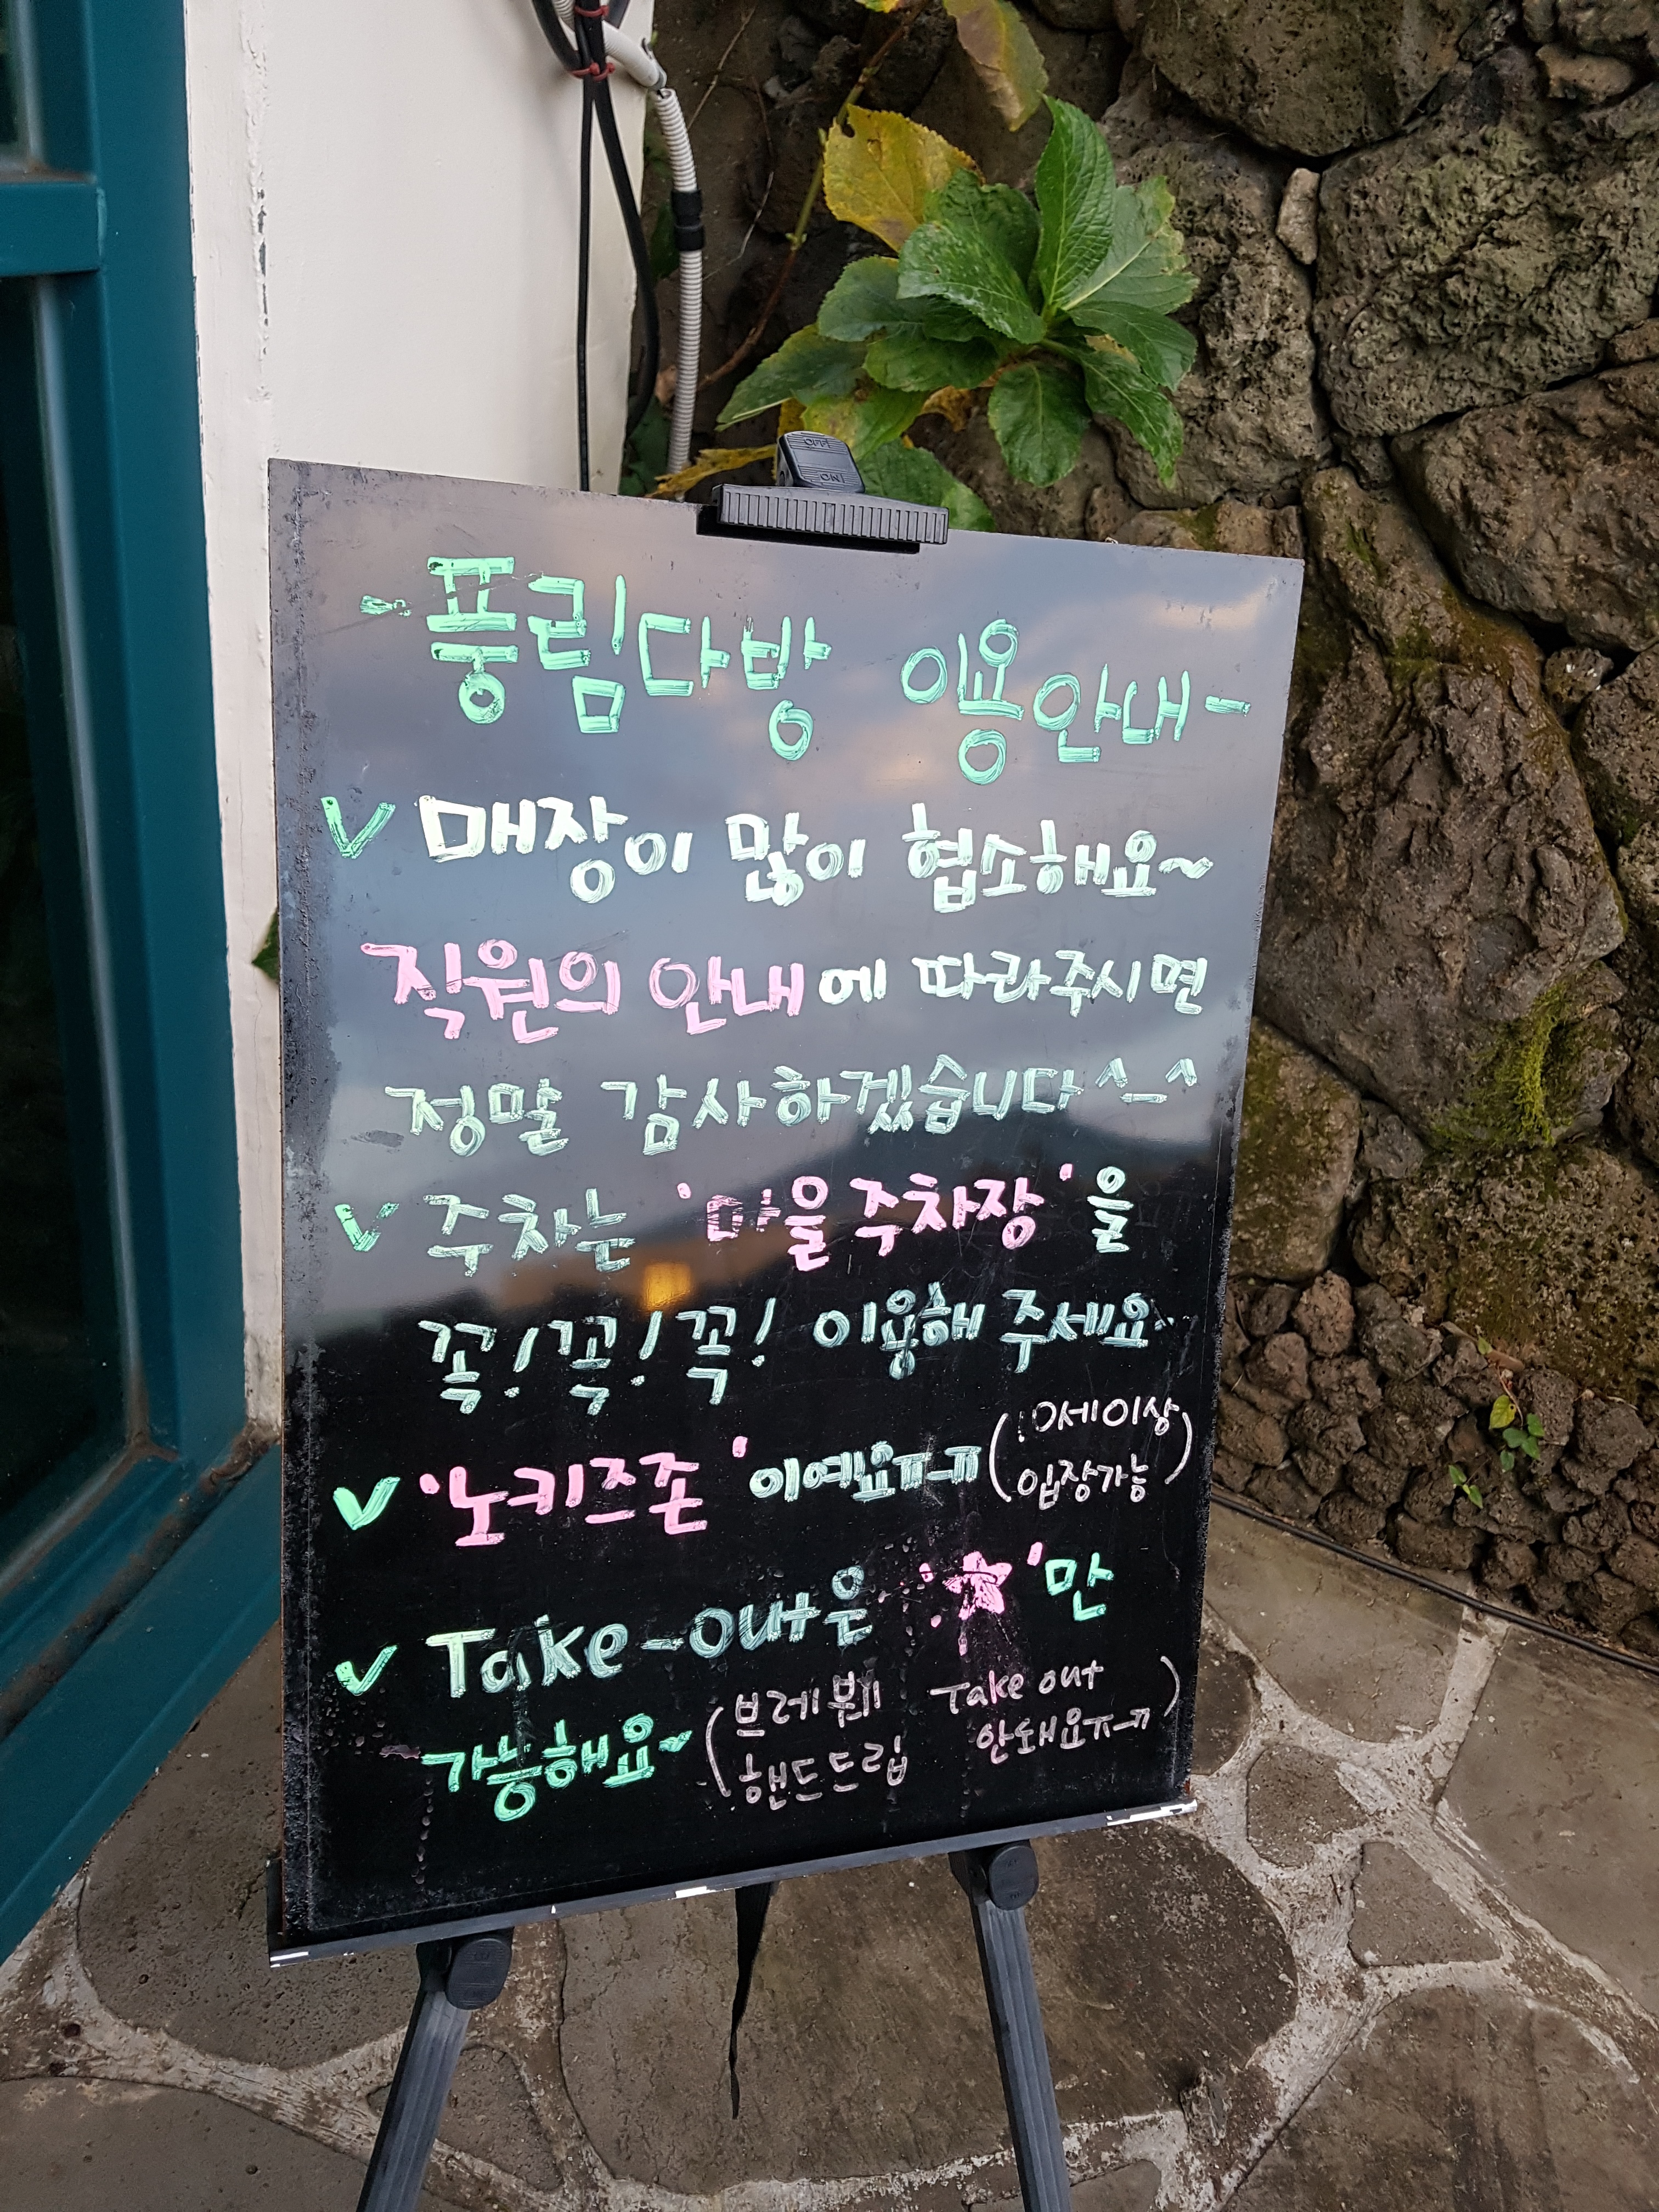 OFF
ON
- 풍림다방 이용안내 -
V 매장이 많이 협소해요~
직원의 안내에 따라주시면
정말 감사하겠습니다^_^
V 주차는 '마을주차장'을
꼭! 꼭! 꼭! 이용해 주세요~
V '노키즈존'이예요ㅠㅠ (10세이상
입장가능)
V Take-out은 '☆'만
가능해요~ (브레붸 Take out
핸드드립 안돼요ㅠㅠ)